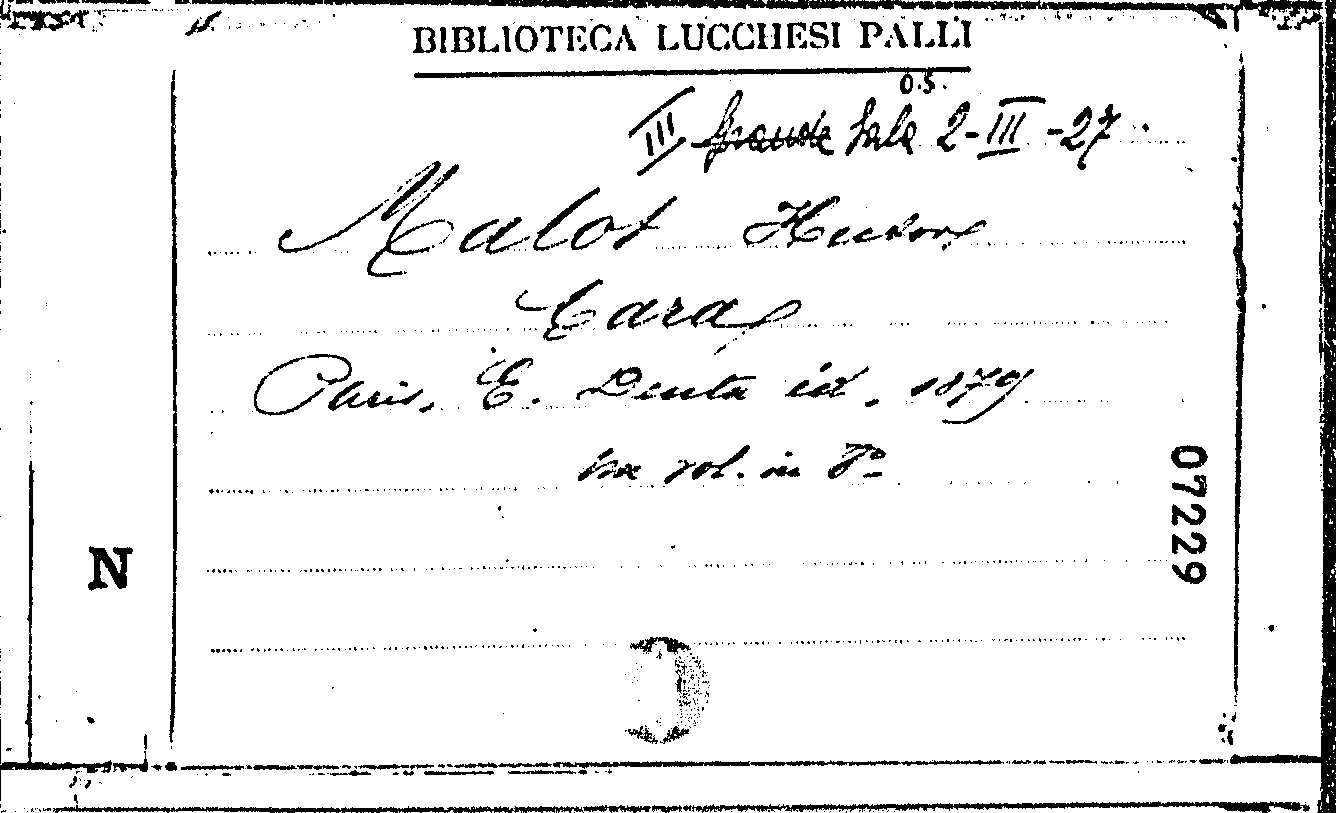 BIBLIOTECA LUCCHESI PALLI
O.S.
III Grande Sala 2-III-27
Malot Hector
Cara
Paris, E. Dentu éd. 1879
un vol. in 8º
07229
N